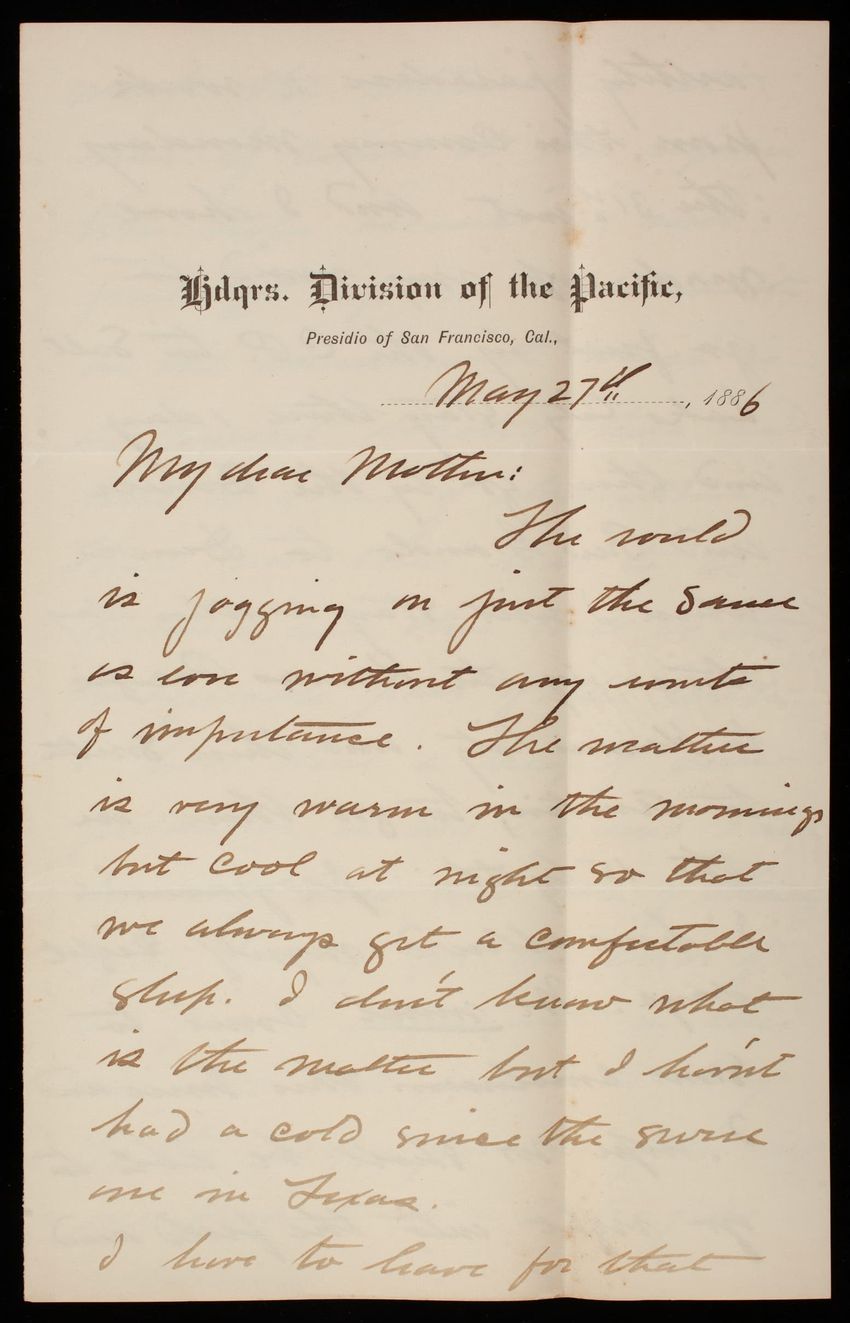 Hdqrs. Division of the Pacific,
Presidio of San Francisco, Cal.,
May 27th, 1886
My dear Mother:
The world
is jogging on just the same
as ever without any events
of importance. The weather
is very warm in the mornings
but cool at night so that
we always get a comfortable
sleep. I don't know what
is the matter but I hav'nt
had a cold since the severe
one in Texas.
I have to leave for that